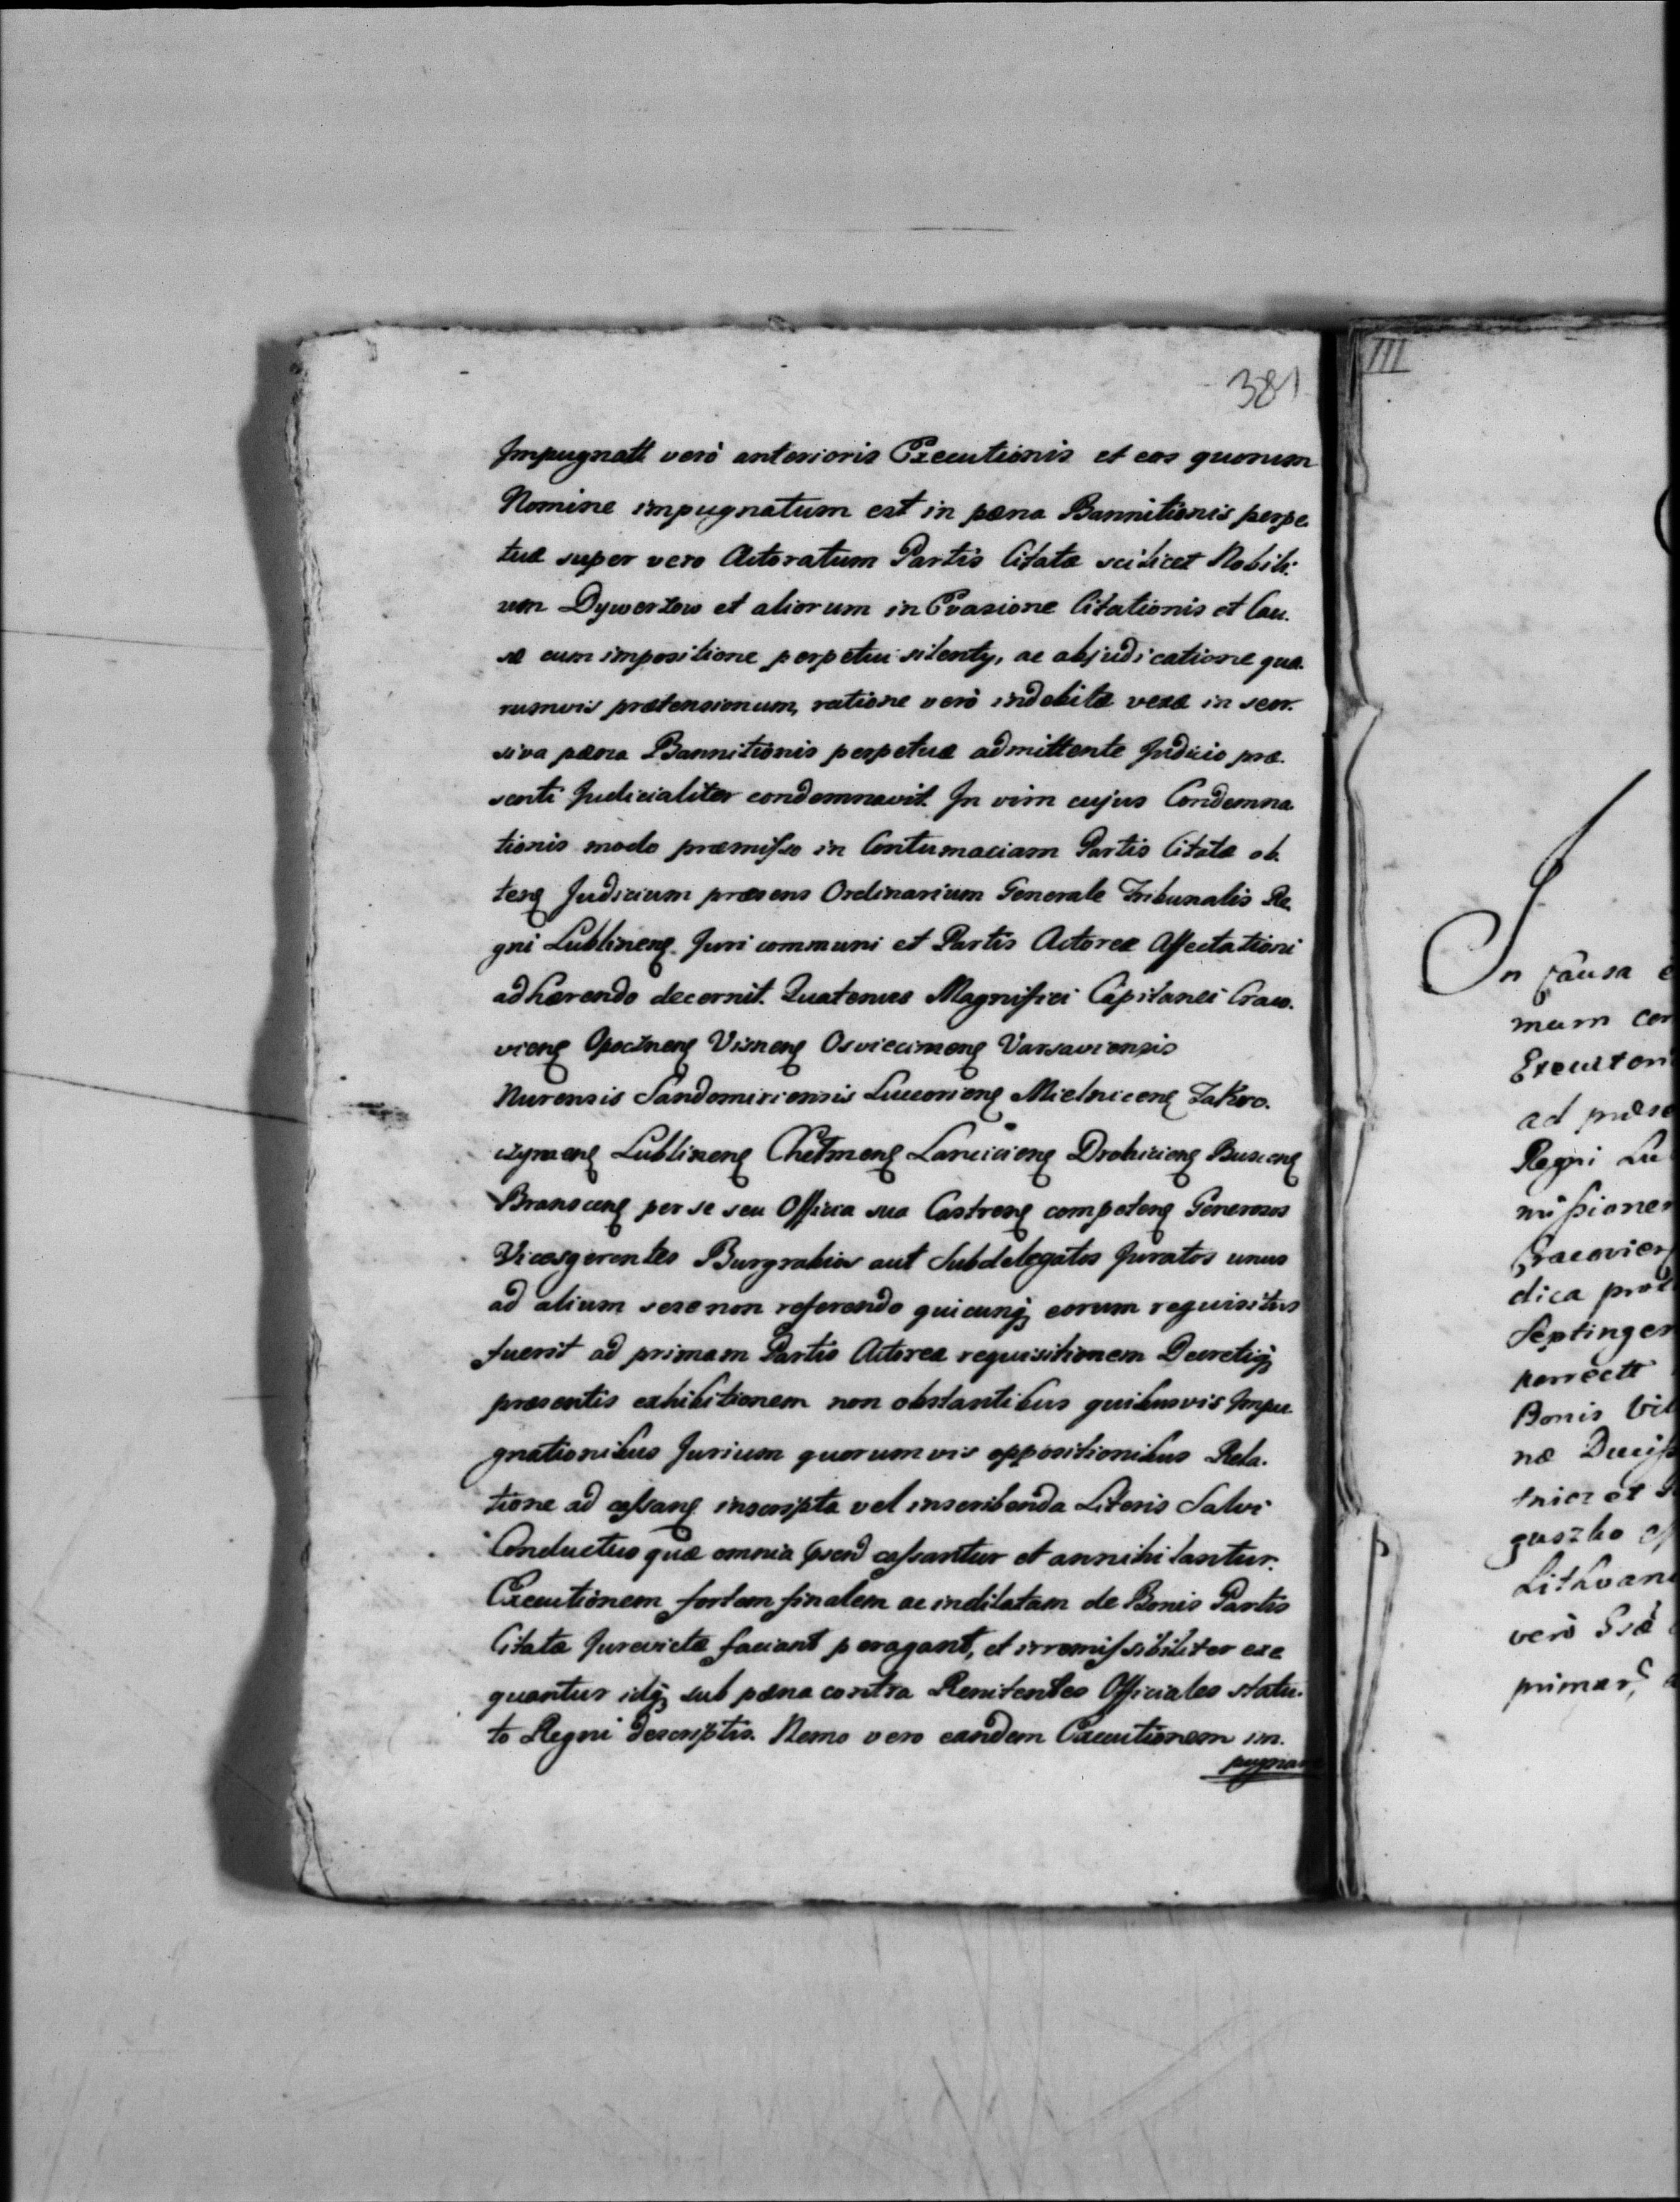 381
Impugnatt verò anterioris Executionis et eos quorum
Nomine impugnatum est in pæna Bannitionis perpe.
tuæ super vero Actoratum Partis Citatæ scilicet Nobili.
um Dywertow et aliorum in Evasione Citationis et Cau.
sæ cum impositione perpetui silentÿ, ac abjudicatione quo.
rumvis prætensionum, ratione verò indebitæ vexæ in seor.
siva pæna Bannitionis perpetuæ admittente Judicio præ.
senti Judicialiter condemnavit. In vim cujus Condemna
tionis modo præmisso in Contumaciam Partis Citatæ ob.
tens Judicium præsens Ordinarium Generale Tribunalis Re.
gni Lublinens. Juri communi et Partis Actoreæ Affectationi
adhærendo decernit. Quatenus Magnifici Capitanei Craco.
viens Opocznens Visnens Osviecimens Varsaviensis
Nurensis Sandomiriensis Lucoriens Mielnicens Zakro.
czymens Lublinens Chełmens Lanciciens Drohiciens Buscens
Branscens per se seu Officia sua Castrens competens Generosos
Vicesgerentes Burgrabios aut Subdelegatos Juratos unus
ad alium sese non referendo quicunq eorum requisitus
fuerit ad primam Partis Actoreæ requisitionem Decretiq
præsentis exhibitionem non obstantibus quibusvis Impu
gnationibus Jurium quorumvis oppositionibus Rela.
tione ad cassans inscripta vel inscribenda Literis Salvi
Conductus quæ omnia cassantur et annihilantur.
Executionem fortem finalem ac indilatam de Bonis Partis
Citatæ Jurevictæ faciant peragant, et irremissibiliter exe
quantur idq sub pæna contra Renitentes Officiales statu.
to Regni descriptis. Nemo vero eandem Executionem im.
pugnare
III
In Causa
mum
ad
Regni Lu
missione
dica
Septinge
Bonis
næ
Lithvan
verò
primar